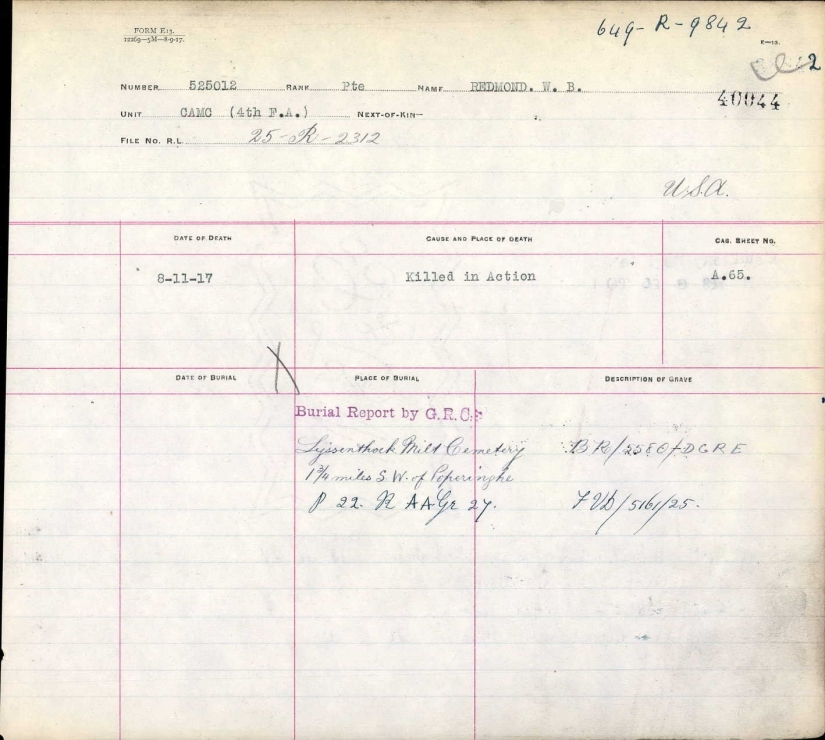 FORM E13.
12269—5M—8-9-17.
649-R-9842
E—13.
2
NUMBER 525012 RANK Pte NAME REDMOND. W. B.
40044
UNIT CAMC (4th F.A.) NEXT-OF-KIN—
FILE NO. R.L. 25-R-2312
U.S.A.
DATE OF DEATH CAUSE AND PLACE OF DEATH CAS. SHEET NO.
8-11-17 Killed in Action A.65.
DATE OF BURIAL PLACE OF BURIAL DESCRIPTION OF GRAVE
Burial Report by G.R.C.
Lyssenthoek Milt Cemetery BR/5580/DGRE
1¾ miles S.W. of Poperinghe
P 22. R AA Gr 27. FVD/5161/25.